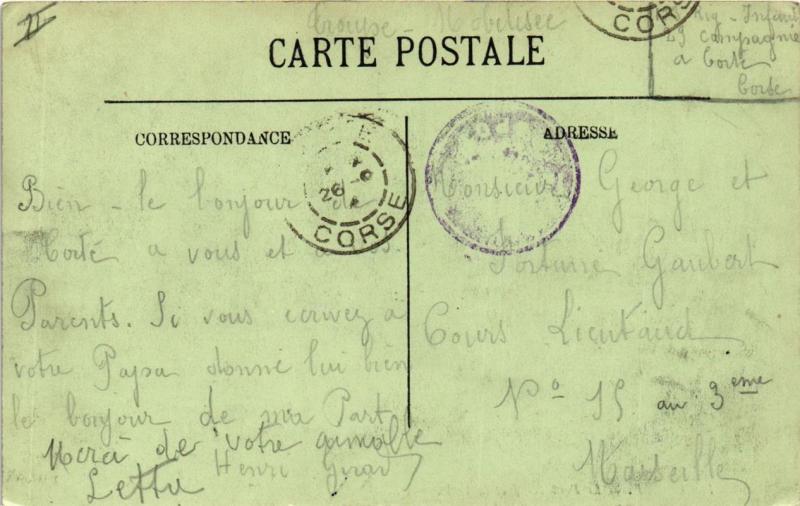 II
Mobilisée
Infant
29 compagnie
a Corte
Corse
CORSE
CARTE POSTALE
CORRESPONDANCE
ADRESSE
26 - 9
CORSE
Bien - le bonjour de
Corté a vous et a vos
Parents. Si vous ecrivez a
votre Papa donné lui bien
le bonjour de ma Part
Henri Girard
Merci de votre aimable
Lettre
Monsieur George et
Fortuné Gaubert
Cours Lieutaud
Nº 15 au 3eme
Marseille